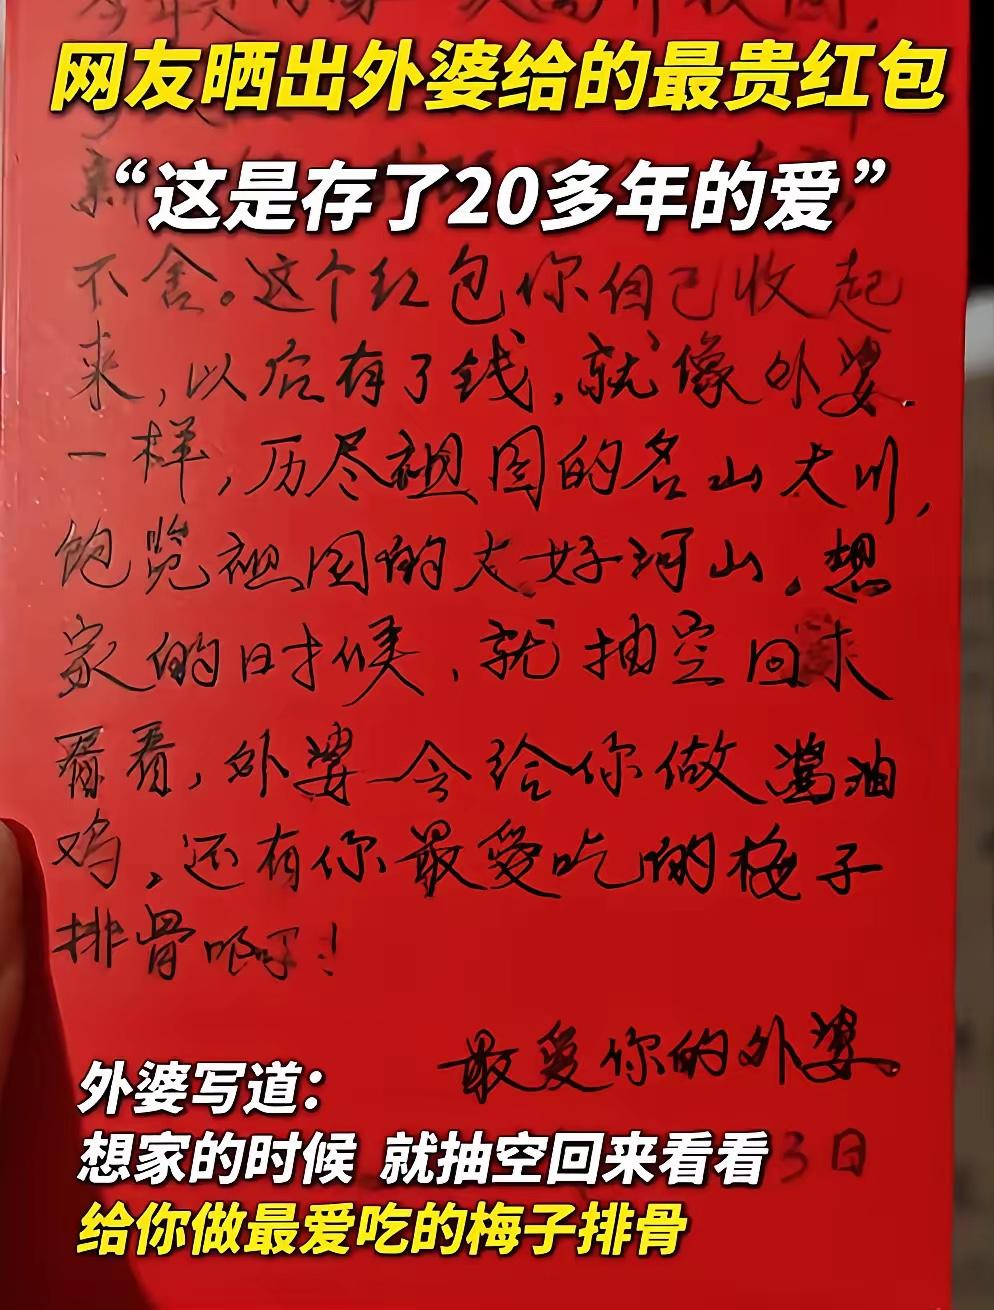 网友晒出外婆给的最贵红包
“这是存了20多年的爱”
不舍。这个红包你自己收起
来，以后有了钱，就像外婆
一样，历尽祖国的名山大川，
饱览祖国的大好河山。想
家的时候，就抽空回来
看看，外婆会给你做酱油
鸡，还有你最爱吃的梅子
排骨啊！
最爱你的外婆。
3日
外婆写道：
想家的时候 就抽空回来看看
给你做最爱吃的梅子排骨